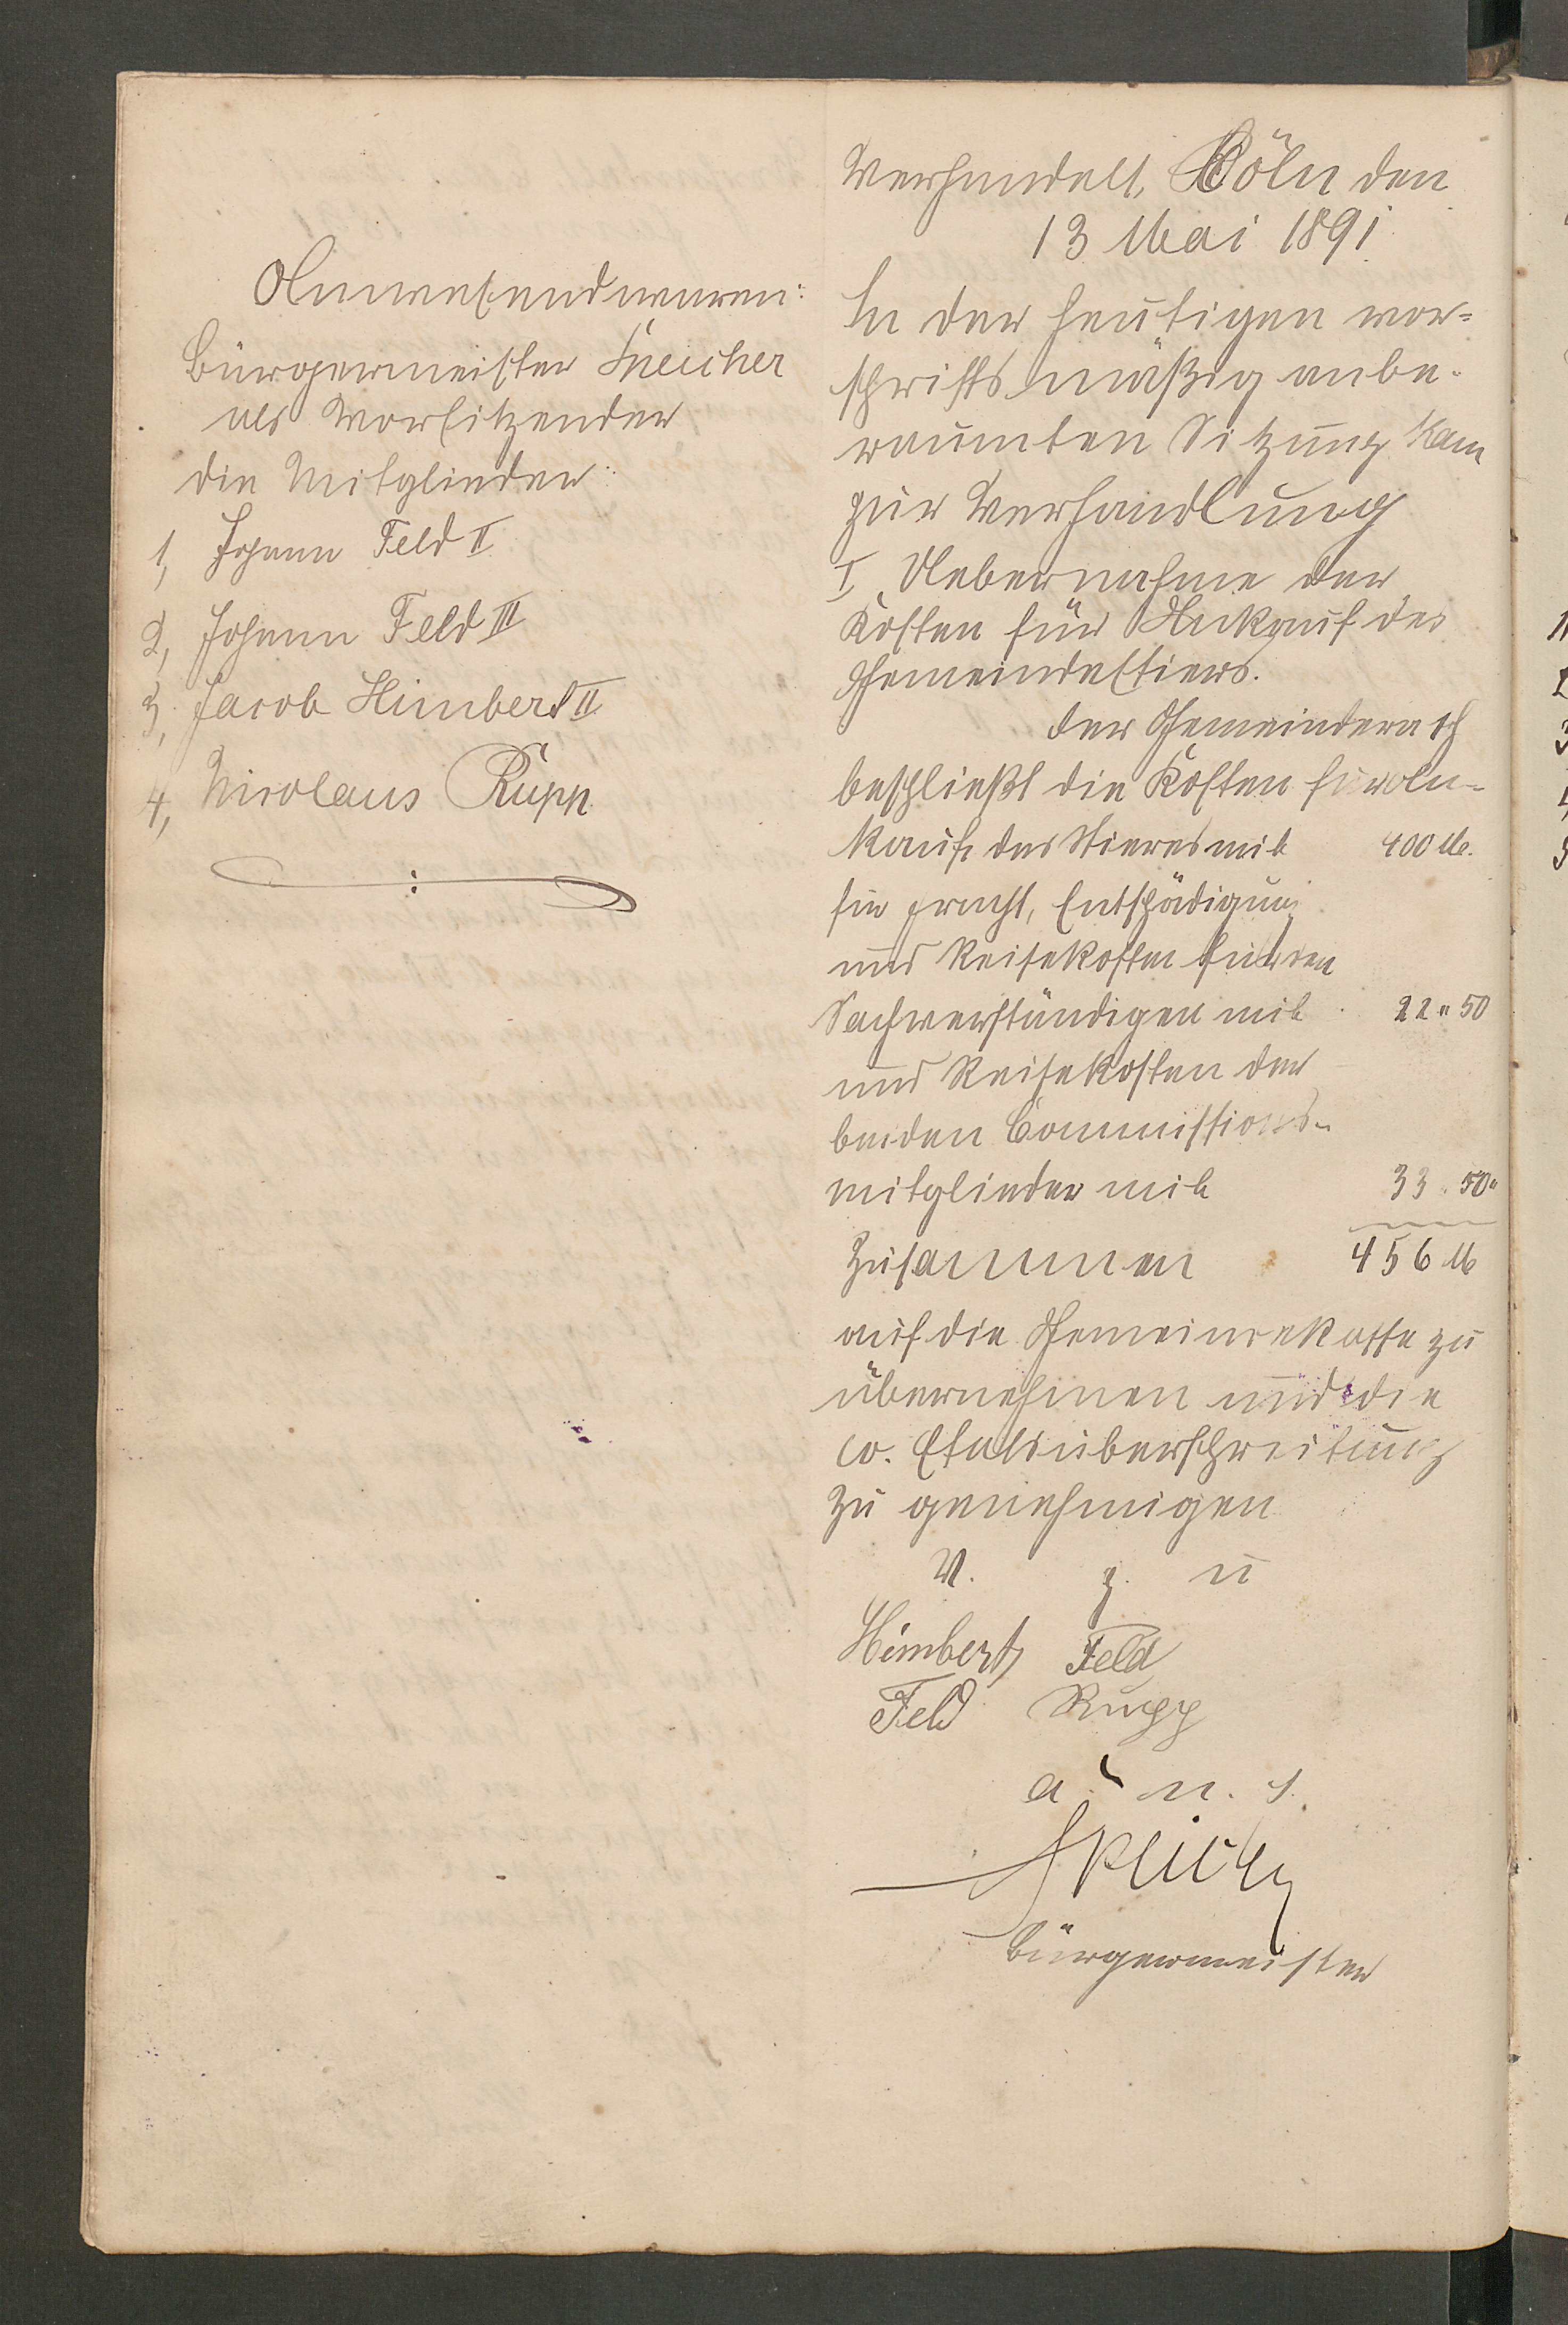 Anwesend waren:
Bürgermeister Speicher
als Vorsitzender
die Mitglieder:
1, Johann Feld II
2, Johann Feld III
3, Jacob Himbert II
4, Nicolaus Rupp
Verhandelt, Cöln den
13 Mai 1891.
In der heutigen vor=
schriftsmäßig anbe-
raumten Sitzung kam
zur Verhandlung
I, Uebernahme der
Kosten für Ankauf des
Gemeindestiers.
Der Gemeinderath
beschließt die Kosten für An-
kauf des Stieres mit 400 M.
für Fracht, Entschädigung
und Reisekosten für den
Sachverständigen mit 22 " 50
und Reisekosten der
beiden Commissions-
mitglieder mit 33 " 50 "
Zusammen 456 M
auf die Gemeindekasse zu
übernehmen und die
co. Etatsüberschreitung
zu genehmigen
V. g. u
Himbert Feld
Feld Rupp
a. u. s.
Speicher
Bürgermeister